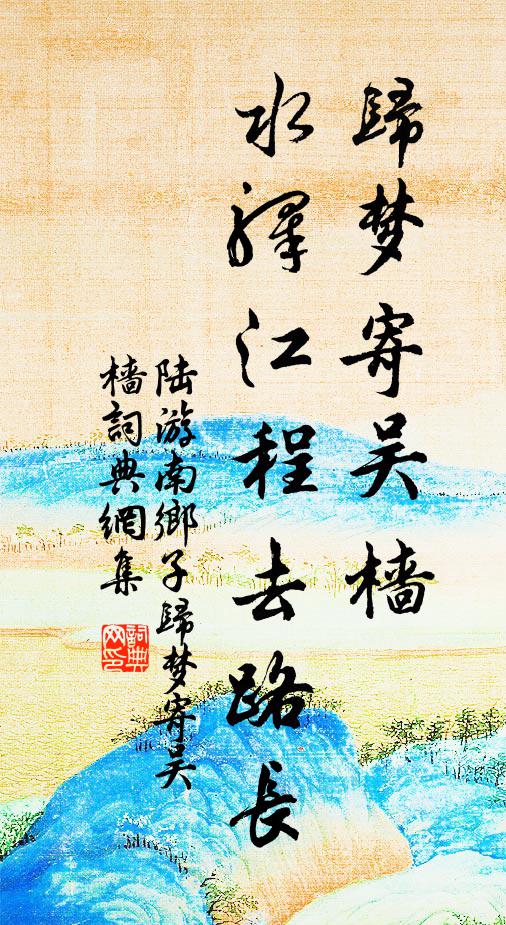 歸梦寄吴樯
水驛江程去路長
陆游南鄉子歸梦寄吴
樯詞典網集
詞典
网印